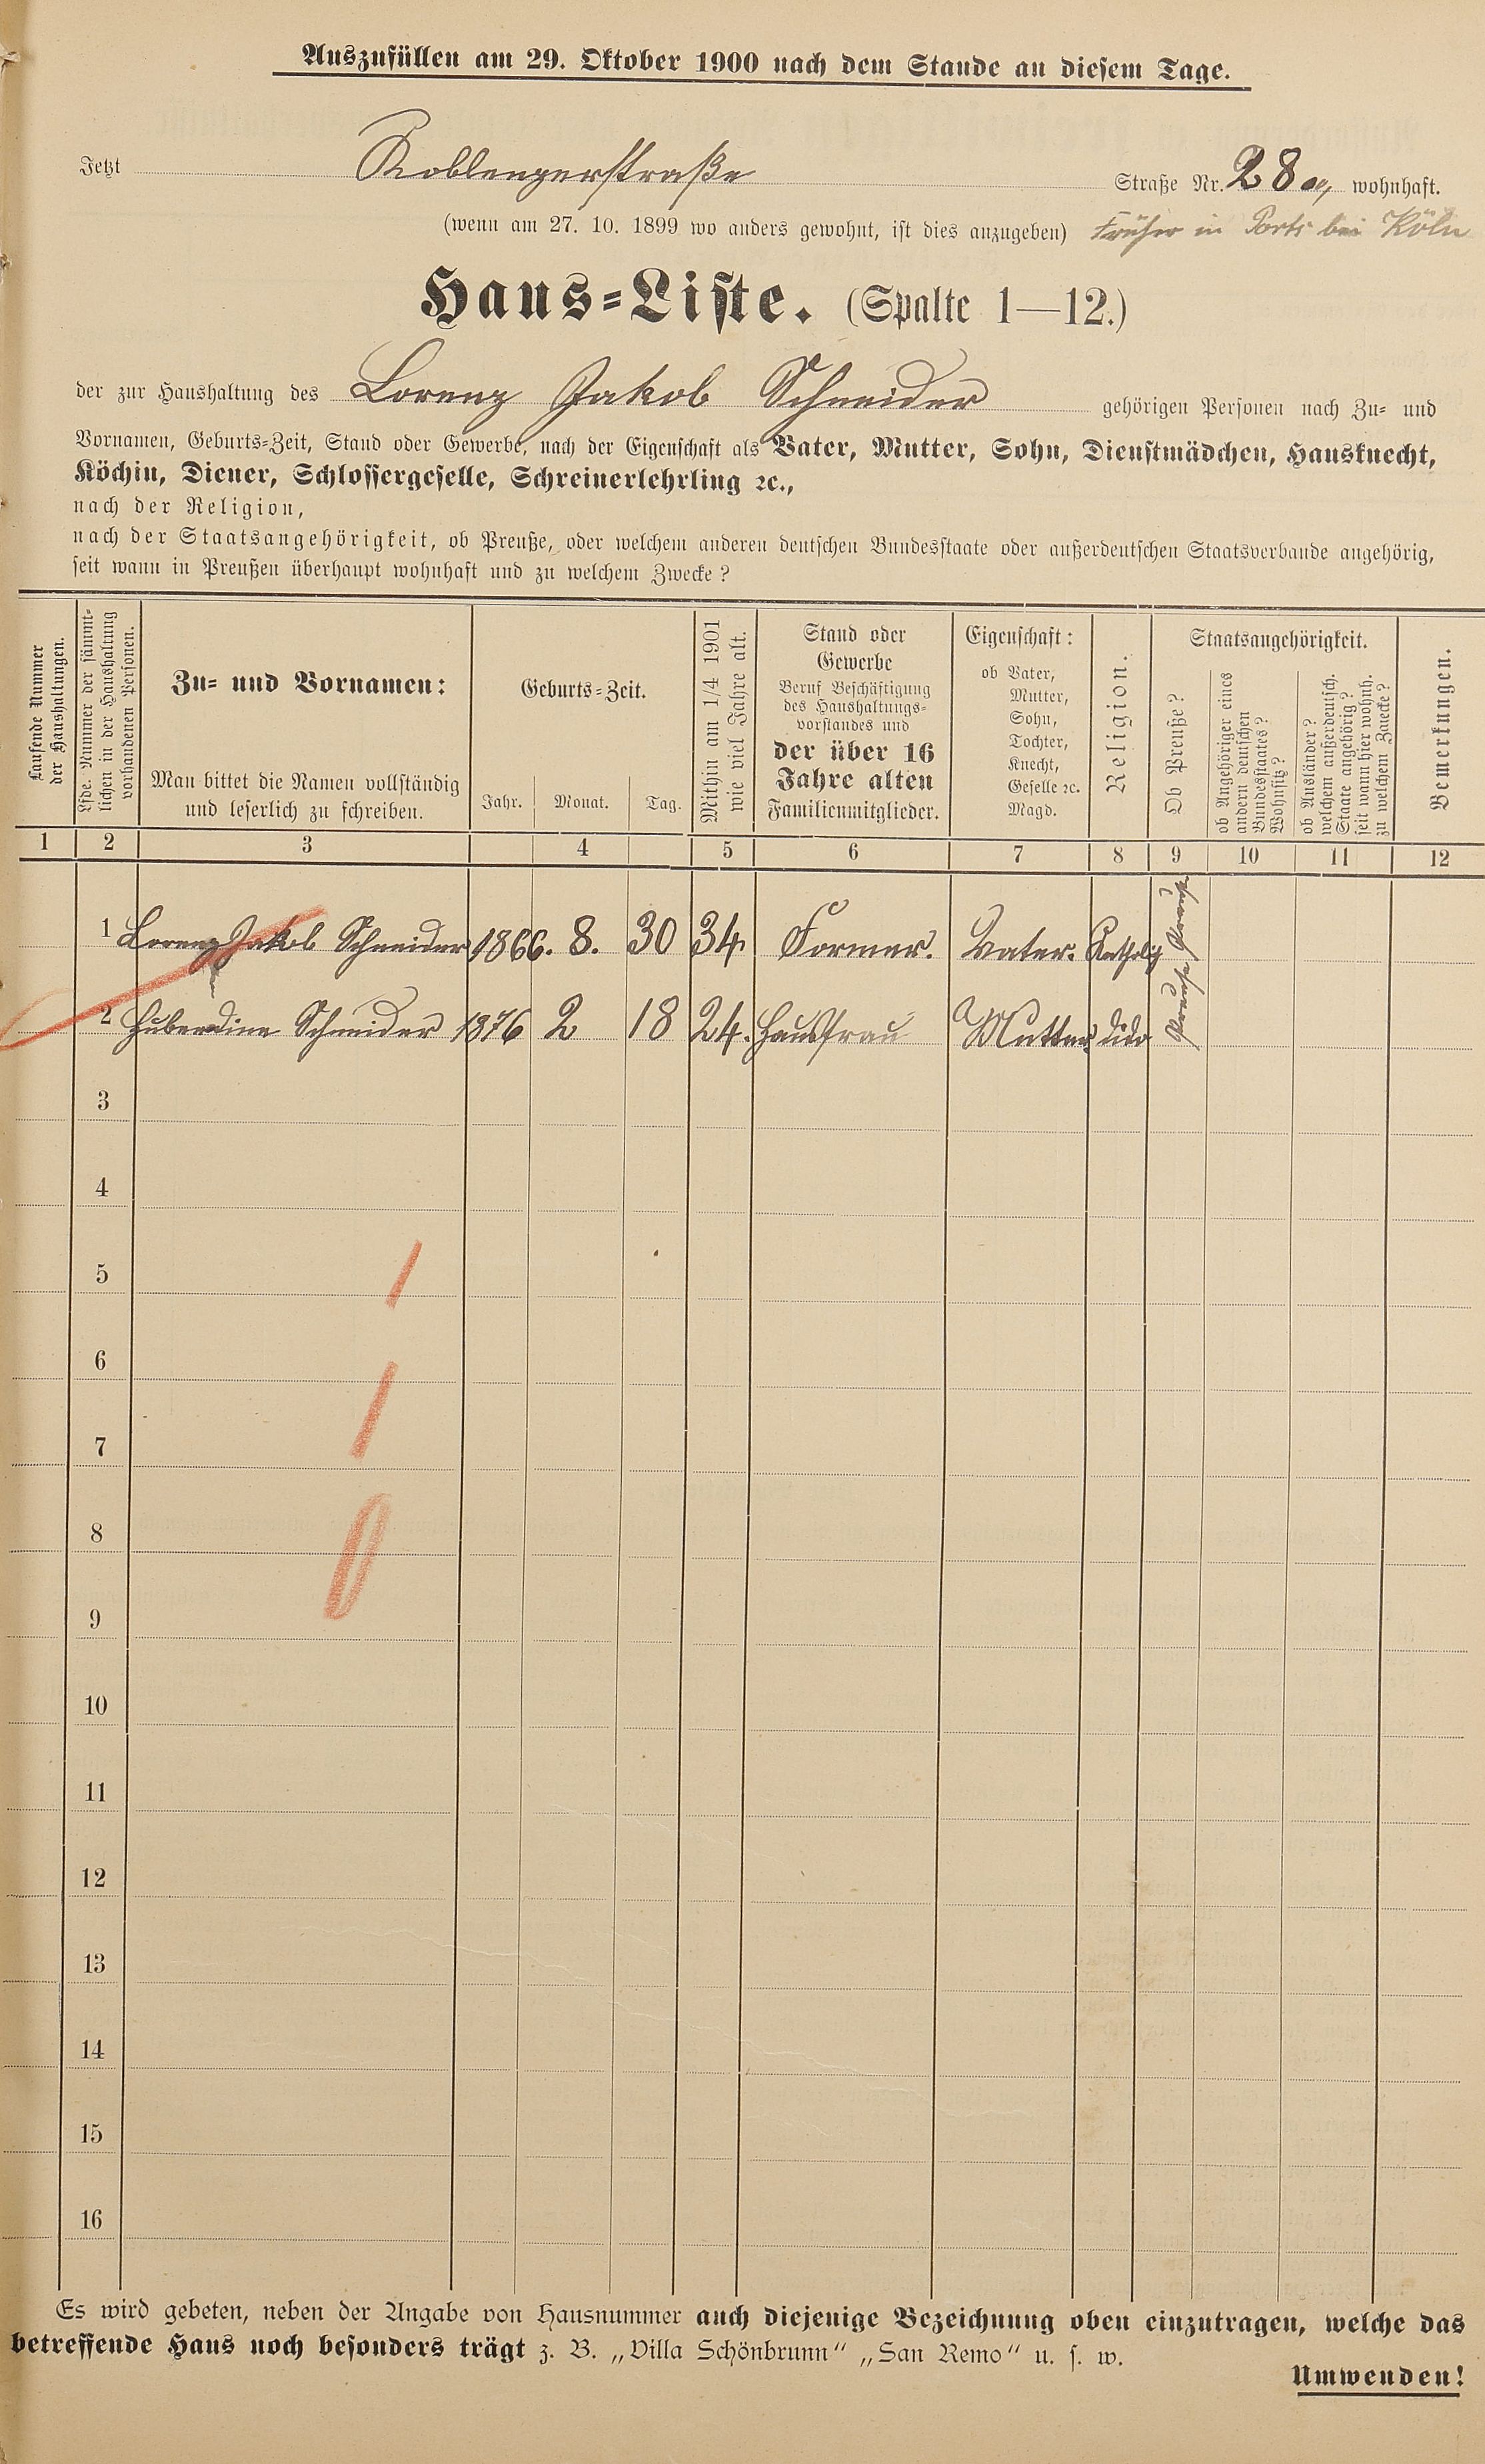 Auszufüllen am 29. Oktober 1900 nach dem Stande an diesem Tage.
Jetzt Koblenzerstraße Straße Nr. 28a, wohnhaft.
(wenn am 27. 10. 1899 wo anders gewohnt, ist dies anzugeben) Früher in Ports bei Köln
Haus=Liste. (Spalte 1—12.)
der zur Haushaltung des Lorenz Jakob Schneider gehörigen Personen nach Zu= und
Vornamen, Geburts=Zeit, Stand oder Gewerbe, nach der Eigenschaft als Vater, Mutter, Sohn, Dienstmädchen, Hausknecht,
Köchin, Diener, Schlossergeselle, Schreinerlehrling ꝛc.,
nach der Religion,
nach der Staatsangehörigkeit, ob Preuße, oder welchem anderen deutschen Bundesstaate oder außerdeutschen Staatsverbande angehörig,
seit wann in Preußen überhaupt wohnhaft und zu welchem Zwecke?
Laufende Nummer
der Haushaltungen.
Lfde. Nummer der sämmt=
lichen in der Haushaltung
vorhandenen Personen.
Zu= und Vornamen:
Man bittet die Namen vollständig
und leserlich zu schreiben.
Geburts=Zeit.
Jahr. Monat. Tag.
Mithin am 1/4 1901
wie viel Jahre alt.
Stand oder
Gewerbe
Beruf Beschäftigung
des Haushaltungs=
vorstandes und
der über 16
Jahre alten
Familienmitglieder.
Eigenschaft:
ob Vater,
Mutter,
Sohn,
Tochter,
Knecht,
Geselle ꝛc.
Magd.
Religion.
Staatsangehörigkeit.
Ob Preuße?
ob Angehöriger eines
andern deutschen
Bundesstaates?
Wohnsitz?
ob Ausländer?
welchem außerdeutsch.
Staate angehörig?
seit wann hier wohnh.
zu welchem Zwecke?
Bemerkungen.
1 2 3 4 5 6 7 8 9 10 11 12
1 Lorenz Jakob Schneider 1866. 8. 30 34. Former. Vater. Katholig Preuße
2 Huberdine Schneider 1876 2 18 24. Hausfrau Mutter dido Preuße
3
4
5
6
7
8
9
10
11
12
13
14
15
16
Es wird gebeten, neben der Angabe von Hausnummer auch diejenige Bezeichnung oben einzutragen, welche das
betreffende Haus noch besonders trägt z. B. „Villa Schönbrunn“ „San Remo“ u. s. w.
Umwenden!